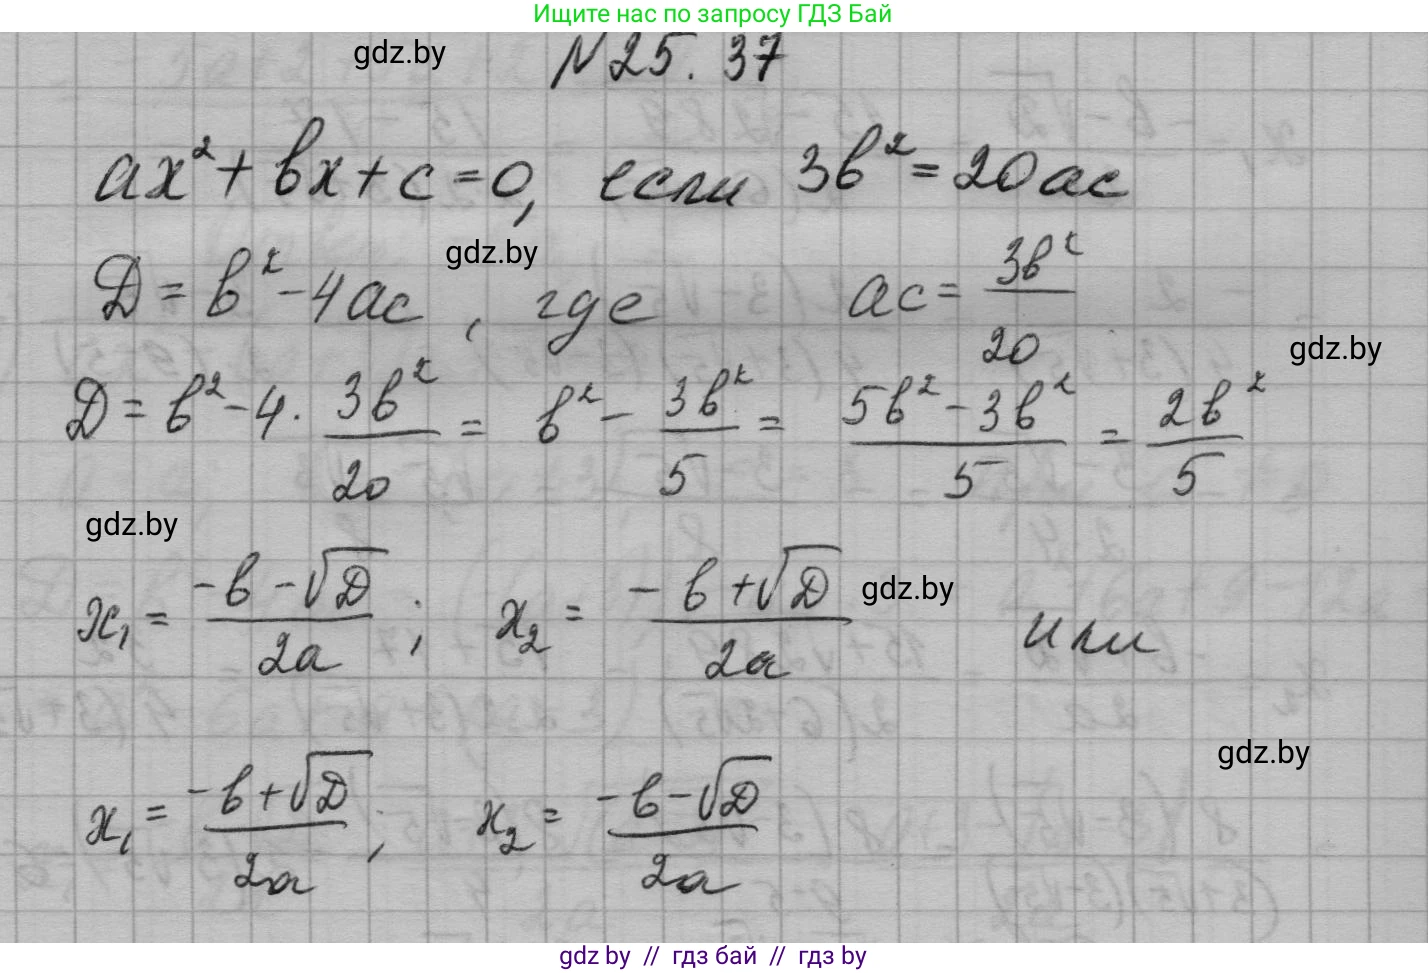 Ищите нас по запросу ГДЗ Бай
gdz.by
N25.37
ax² + bx + c = 0, если 3b² = 20ac
gdz.by
D = b² - 4ac, где ac = 3b²/20
gdz.by
D = b² - 4 · 3b²/20 = b² - 3b²/5 = (5b² - 3b²)/5 = 2b²/5
gdz.by
x₁ = (-b - √D)/2a; x₂ = (-b + √D)/2a или
gdz.by
gdz.by
x₁ = (-b + √D)/2a; x₂ = (-b - √D)/2a
gdz by // гдз бай // гдз by